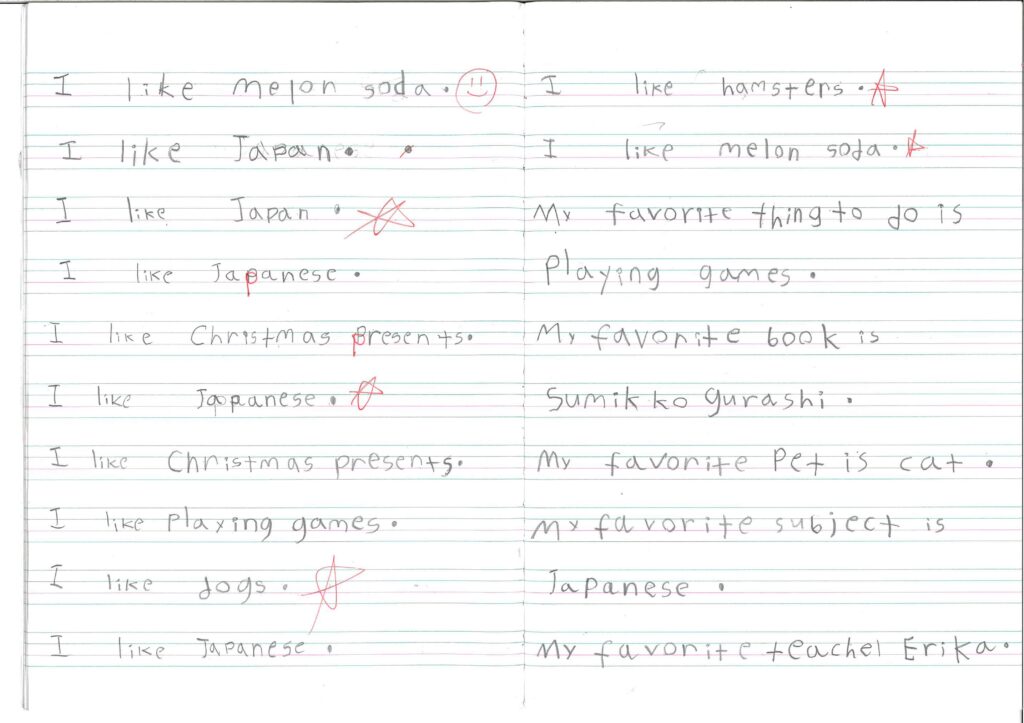 I like melon soda.
I like Japan.
I like Japan.
I like Japanese.
I like Christmas presents.
I like Japanese.
I like Christmas presents.
I like Playing games.
I like dogs.
I like Japanese.
I like hamsters.
I like melon soda.
My favorite thing to do is
Playing games.
My favorite book is
Sumikko gurashi.
My favorite Pet is cat.
My favorite subject is
Japanese.
My favorite teachel Erika.